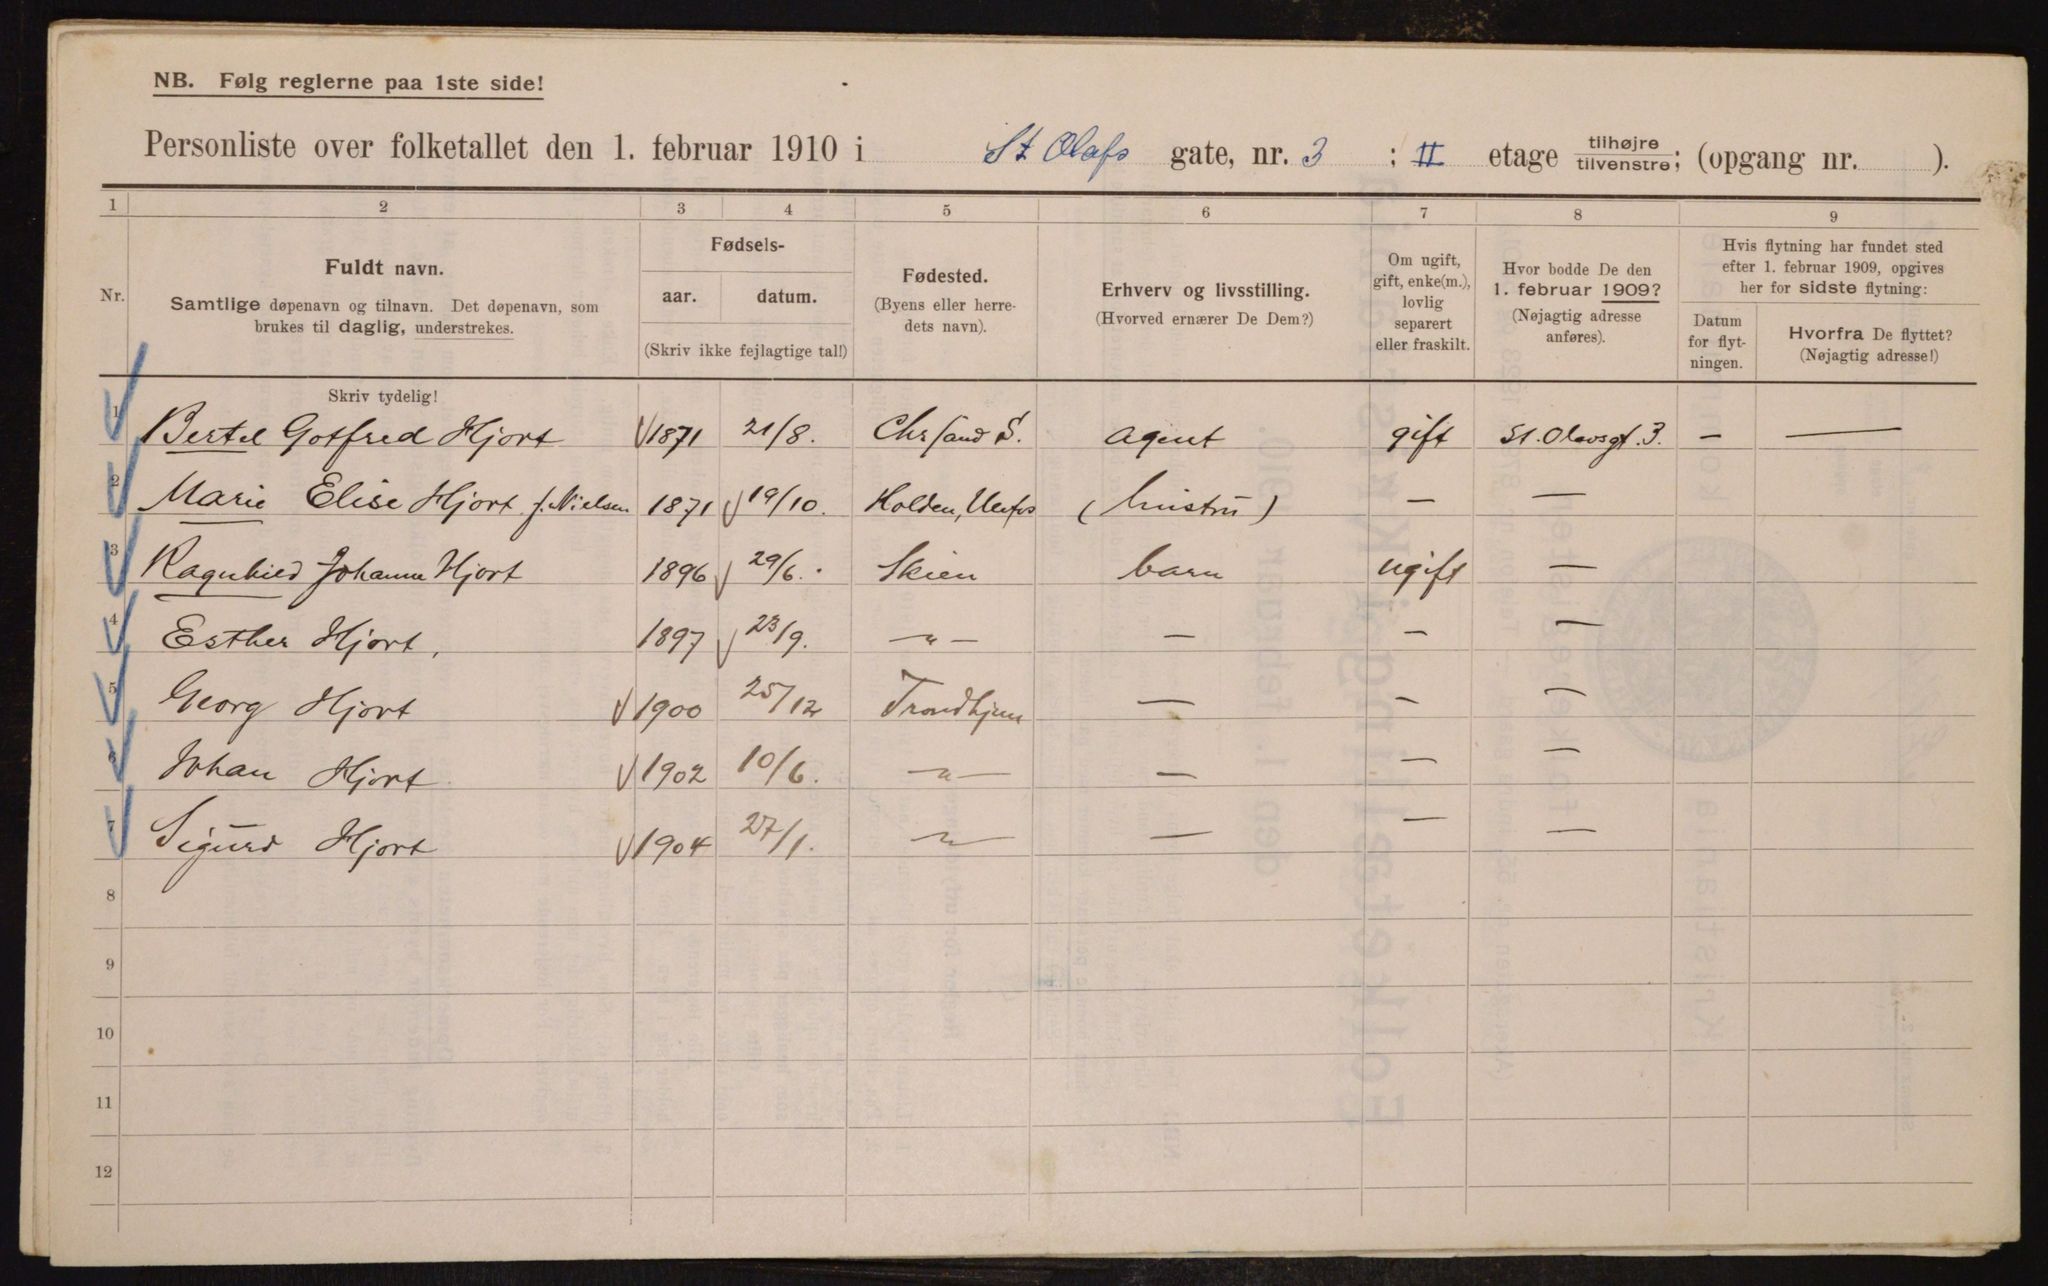 NB. Følg reglerne paa 1ste side!
Personliste over folketallet den 1. februar 1910 i St Olafs gate, nr. 3 ; II etage tilhøjre tilvenstre; (opgang nr. ).
1 2 3 4 5 6 7 8 9
Nr.
Fuldt navn.
Samtlige døpenavn og tilnavn. Det døpenavn, som
brukes til daglig, understrekes.
Fødsels-
aar. datum.
(Skriv ikke fejlagtige tal!)
Fødested.
(Byens eller herre-
dets navn).
Erhverv og livsstilling.
(Hvorved ernærer De Dem?)
Om ugift,
gift, enke(m.),
lovlig
separert
eller fraskilt.
Hvor bodde De den
1. februar 1909?
(Nøjagtig adresse
anføres).
Hvis flytning har fundet sted
efter 1. februar 1909, opgives
her for sidste flytning:
Datum
for flyt-
ningen.
Hvorfra De flyttet?
(Nøjagtig adresse!)
Skriv tydelig!
1 Bertel Gotfred Hjort 1871 21/8. Chrsand S. Agent gift St. Olavsgt. 3. — —
2 Marie Elise Hjort f. Nielsen 1871 19/10. Holden, Ulefos (hustru) — —
3 Ragnhild Johanne Hjort 1896 29/6. Skien barn ugift —
4 Esther Hjort, 1897 23/9. —"— — — —
5 Georg Hjort 1900 25/12 Trondhjem — — —
6 Johan Hjort 1902 10/6. —"— — — —
7 Sigurd Hjort 1904 27/1. —"— — — —
8
9
10
11
12